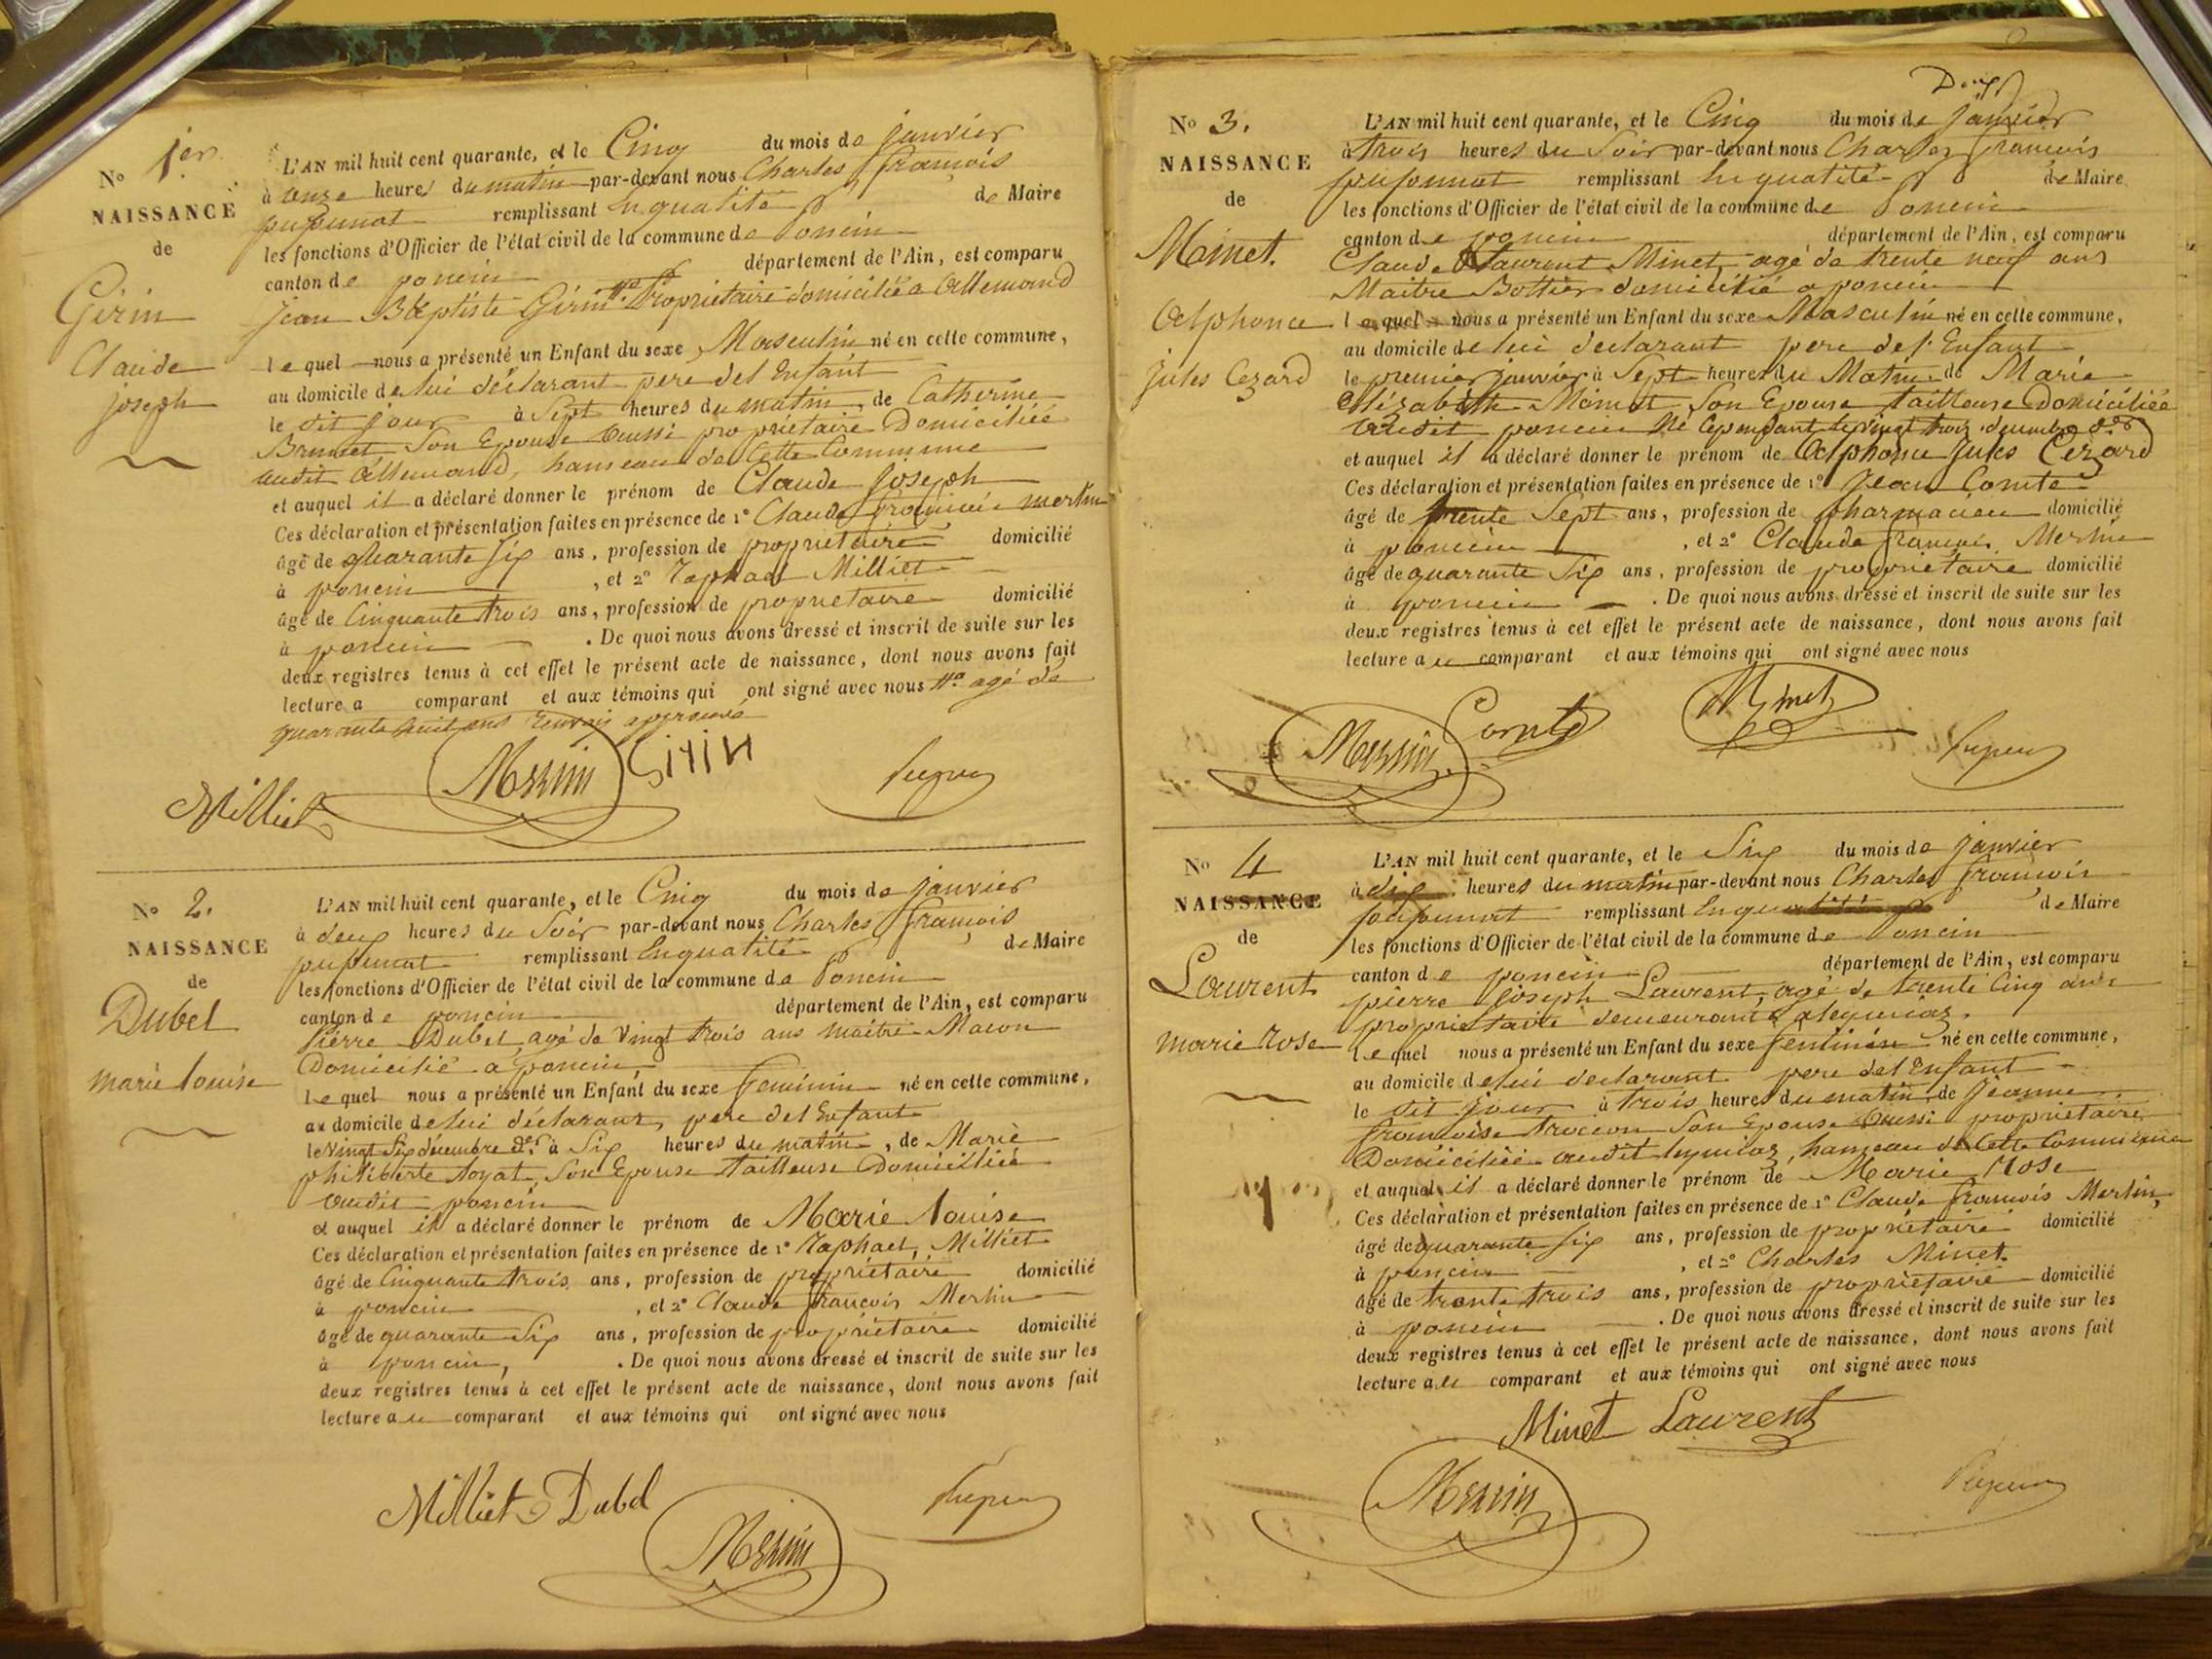 No 1er
NAISSANCE
de
Girin
Claude
joseph
L'AN mil huit cent quarante, et le Cinq du mois de janvier
à onze heures du matin par-devant nous Charles françois
remplissant En qualité de Maire
les fonctions d'Officier de l'état civil de la commune de Poncin
canton de poncin département de l'Ain, est comparu
Jean Baptiste Girin Propriétaire domicilié a Allemand
lequel nous a présenté un Enfant du sexe Masculin né en cette commune,
au domicile de lui déclarant pere del Enfant
le dit jour à Sept heures du matin, de Catherine
Brunet Son Epouse aussi propriétaire Domiciliée
audit Allemand, hameau de Cette Commune
et auquel il a déclaré donner le prénom de Claude Joseph
Ces déclaration et présentation faites en présence de 1º Claude françois merlin
âgé de quarante Six ans, profession de propriétaire domicilié
à poncin, et 2º Raphael Milliet
âgé de Cinquante trois ans, profession de propriétaire domicilié
à poncin. De quoi nous avons dressé et inscrit de suite sur les
deux registres tenus à cet effet le présent acte de naissance, dont nous avons fait
lecture a comparant et aux témoins qui ont signé avec nous agé de
quarante huit ans Renvoi approuvé
Milliet Merlin Girin
No 2.
NAISSANCE
de
Dubel
marie louise
L'AN mil huit cent quarante, et le Cinq du mois de janvier
à deux heures du Soir par-devant nous Charles françois
remplissant En qualité de Maire
les fonctions d'Officier de l'état civil de la commune de Poncin
canton de poncin département de l'Ain, est comparu
Pierre Dubel agé de Vingt trois ans maitre Macon
Domicilié a poncin,
lequel nous a présenté un Enfant du sexe feminin né en cette commune,
au domicile de lui déclarant, pere del Enfant
le Vingt Six décembre der à Six heures du matin, de Marie
philiberte Son Epouse tailleuse Domiciliée
audit poncin
et auquel il a déclaré donner le prénom de Marie louise
Ces déclaration et présentation faites en présence de 1º Raphael Milliet
âgé de Cinquante trois ans, profession de propriétaire domicilié
à poncin, et 2º Claude françois Merlin
âgé de quarante Six ans, profession de propriétaire domicilié
à poncin, . De quoi nous avons dressé et inscrit de suite sur les
deux registres tenus à cet effet le présent acte de naissance, dont nous avons fait
lecture au comparant et aux témoins qui ont signé avec nous
Milliet Dubel
Merlin
Deux
No 3.
NAISSANCE
de
Minet.
Alphonce
jules Cezard
L'AN mil huit cent quarante, et le Cinq du mois de janvier
à trois heures du Soir par-devant nous Charles françois
remplissant En qualité de Maire
les fonctions d'Officier de l'état civil de la commune de Poncin
canton de poncin département de l'Ain, est comparu
Claude Laurent Minet, agé de trente neuf ans
Maitre Bottier domicilié a poncin
lequel nous a présenté un Enfant du sexe Masculin né en cette commune,
au domicile de lui declarant pere del' Enfant
le premier janvier à Sept heures du Matin de Marie
Elizabeth Son Epouse tailleuse Domiciliée
audit poncin Né Cependant le vingt trois decembre der
et auquel il a déclaré donner le prénom de Alphonce Jules Cezard
Ces déclaration et présentation faites en présence de 1º Jean Comte
âgé de trente Sept ans, profession de pharmacien domicilié
à poncin, et 2º Claude françois Merlin
âgé de quarante Six ans, profession de propriétaire domicilié
à poncin. De quoi nous avons dressé et inscrit de suite sur les
deux registres tenus à cet effet le présent acte de naissance, dont nous avons fait
lecture au comparant et aux témoins qui ont signé avec nous
Merlin Comte Minet
No 4
NAISSANCE
de
Laurent
marie rose
L'AN mil huit cent quarante, et le Six du mois de janvier
à dix heures du matin par-devant nous Charles françois
remplissant En qualité de Maire
les fonctions d'Officier de l'état civil de la commune de Poncin
canton de poncin département de l'Ain, est comparu
pierre joseph Laurent, agé de trente Cinq ans
propriétaire demeurant a leymiaz,
lequel nous a présenté un Enfant du sexe feminin né en cette commune,
au domicile de lui declarant pere del Enfant
le dit jour à trois heures du matin, de Jeanne
françoise Son Epouse aussi propriétaire
Domiciliée audit leymiaz, hameau de Cette Commune
et auquel il a déclaré donner le prénom de Marie Rose
Ces déclaration et présentation faites en présence de 1º Claude françois Merlin,
âgé de quarante Six ans, profession de propriétaire domicilié
à poncin, et 2º Charles Minet.
âgé de trente trois ans, profession de propriétaire domicilié
à poncin. De quoi nous avons dressé et inscrit de suite sur les
deux registres tenus à cet effet le présent acte de naissance, dont nous avons fait
lecture au comparant et aux témoins qui ont signé avec nous
Minet Laurent
Merlin